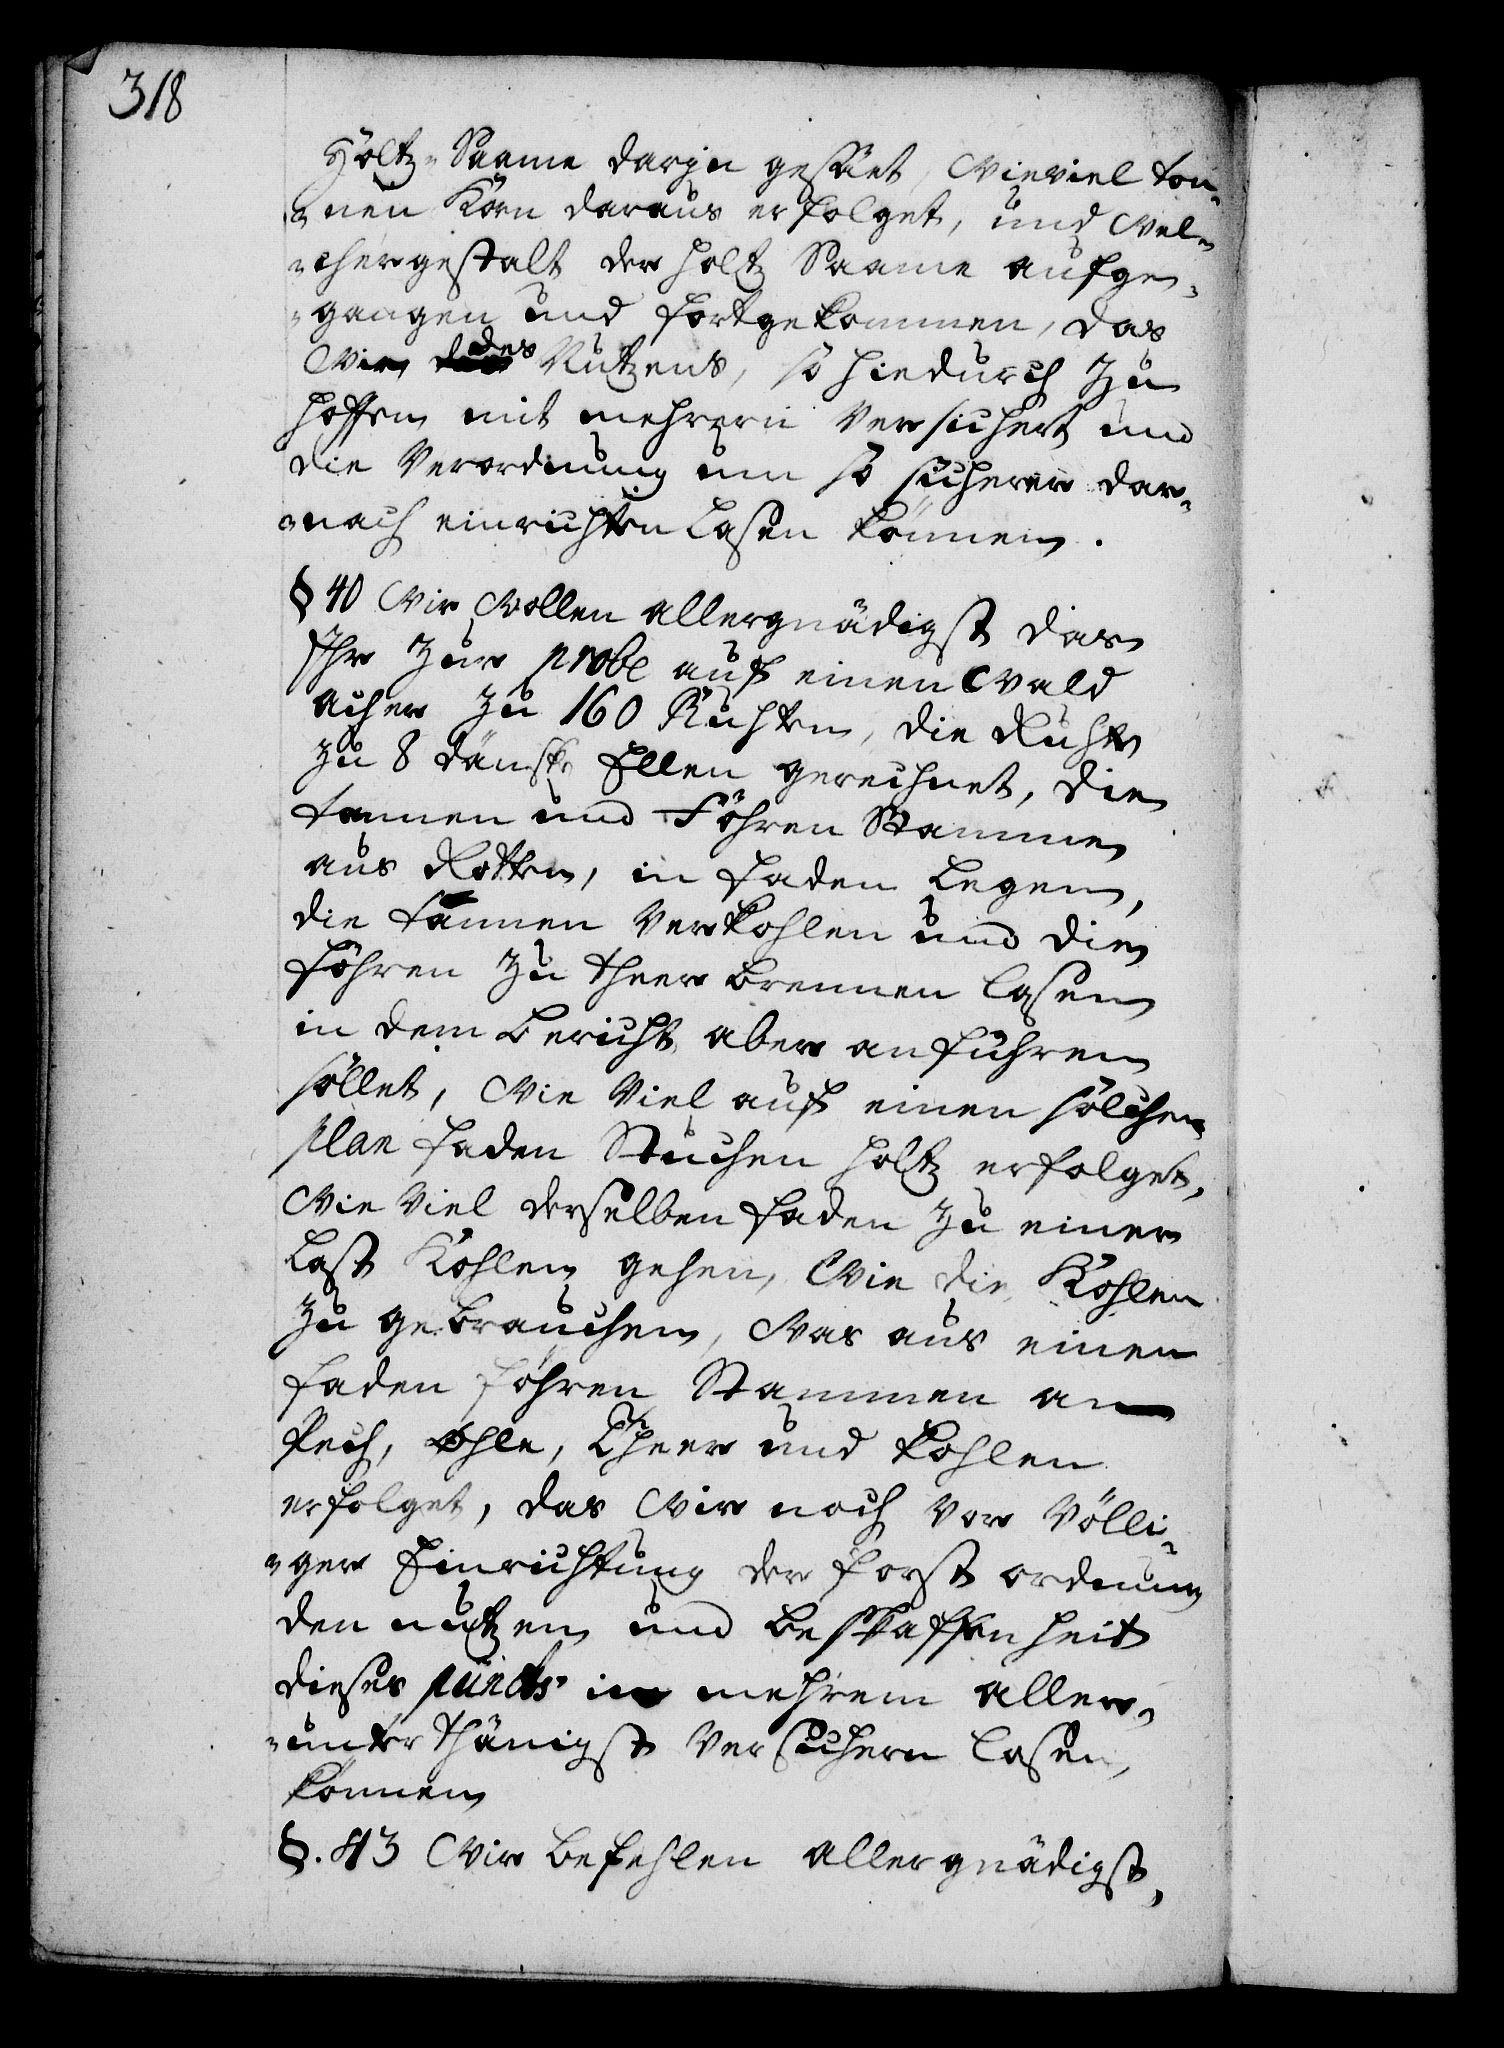 318
Höltz-Saame darjn gesäet, Wieviel ton-
-nen Korn daraus erfolget, und Wel-
-chergestalt der Holtz Saame aufge-
-gangen und fortgekommen, das
Wir des Nutzens, so hiedurch zu
hoffen mit mehrern Versichert und
die Verordnung um so sicherer dar-
-nach einrichten lasen können.
§ 40 Wir Wollen allergnädigst das
Ihr zur probe auf einen Wald
acher zu 160 Ruhten, die Ruhte
zu 8 dänske Ellen gerechnet, die
tannen und Föhren Stamme
aus Rotten, in faden legen,
die tannen Verkohlen und die
föhren zu theer brennen lasen
in dem bericht aber anführen
söllet, Wie Viel auf einen sölchen
plan faden Stuchen holtz erfolget,
Wie Viel derselben faden zu einer
Last Kohlen gehen, Wie die Kohlen
zu gebrauchen, Was aus einen
faden föhren Stammen an
Pech, ohle, Theer und Kohlen
erfolget, das Wir noch Vor Völli-
-ger Einrichtung der forst ordnung
den nutzen und beskaffenheit
dieses puncts in mehrem aller-
-unterthänigst Versichern lasen
können
§. 43 Wir befehlen allergnädigst,